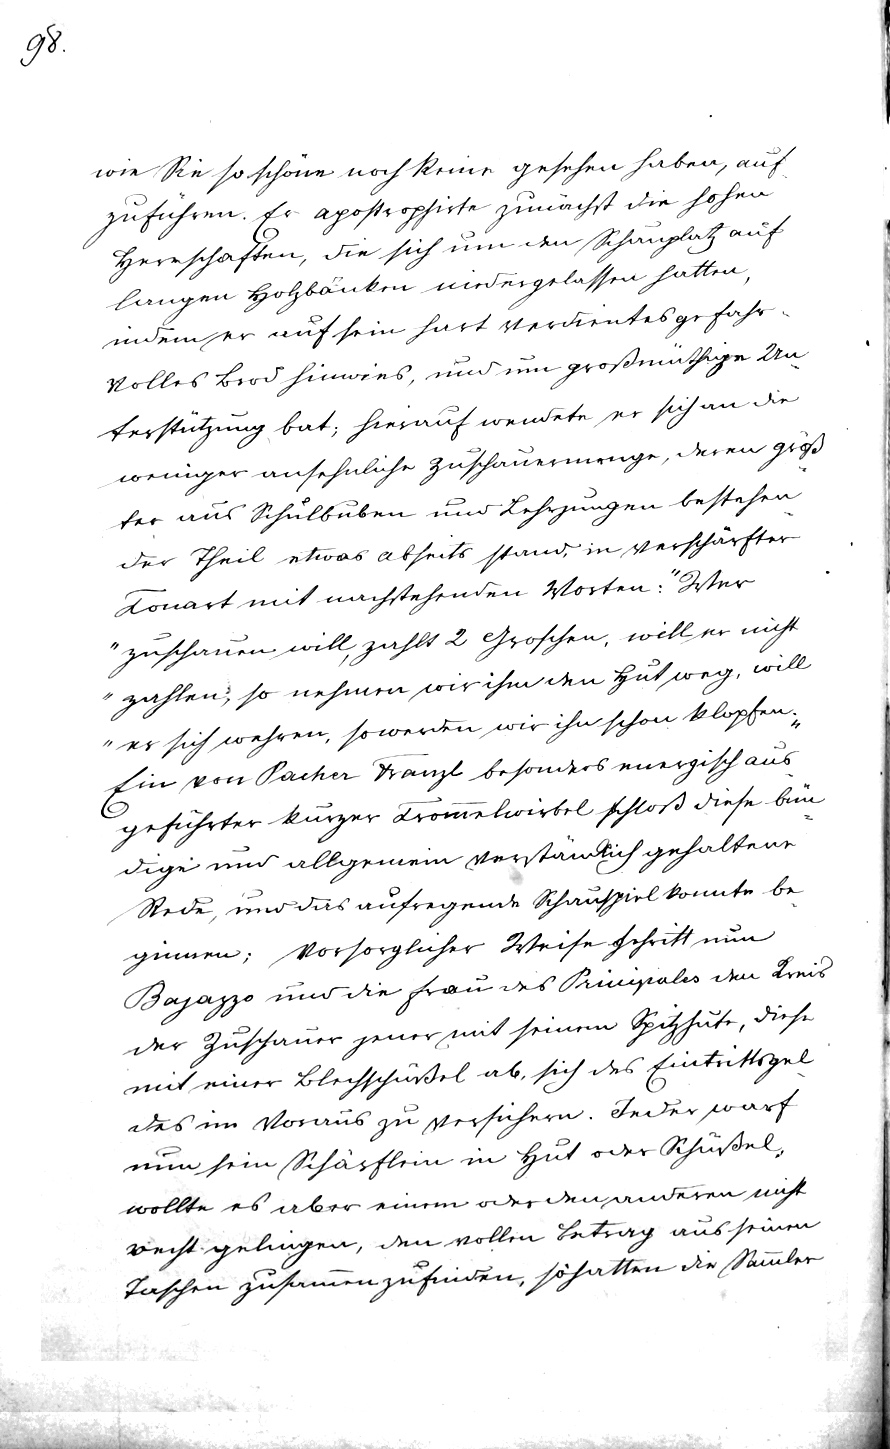 98.
wie Sie so schöne noch keine gesehen haben, auf
zuführen. Er apostrophirte zunächst die hohen
Herrschaften, die sich um den Schauplatz auf
langen Holzbänken niedergelassen hatten,
indem er auf sein hart verdientes gefahr-
volles Brod hinwies, und um großmüthige Un-
terstützung bat; hierauf wendete er sich an die
weniger ansehnliche Zuschauermenge, deren größ-
ter aus Schulbuben und Lehrjungen bestehen-
der Theil etwas abseits stand, in verschärfter
Tonart mit nachstehenden Worten: "Wer
"zuschauen will, zahlt 2 Groschen, will er nicht
"zahlen, so nehmen wir ihm den Hut weg, will
"er sich wehren, so werden wir ihn schon klopfen."
Ein von Pacher Franzl besonders energisch aus-
geführter kurzer Trom̅elwirbel schloß diese bün-
dige und allgemein verständlich gehaltene
Rede, und das aufregende Schauspiel konnte be-
ginnen; vorsorglicher Weise schritt nun
Bajazzo und die Frau des Prinipales den Kreis
der Zuschauer jener mit seinem Spitzhute, diese
mit einer Blechschüßel ab, sich des Eintrittsgel-
des im Voraus zu versichern. Jeder warf
nun sein Schärflein in Hut oder Schüßel,
wollte es aber einem oder den anderen nicht
recht gelingen, den vollen Betrag aus seinen
Taschen zusam̅enzufinden, so hatten die Sam̅ler